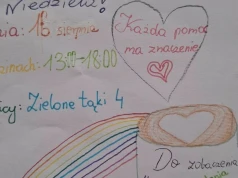 Niedziela!
nia: 16 sierpnia
Każda pomoc
ma znaczenie
zinach: 13:00-18:00
cy: Zielone łąki 4
Do zobaczenia